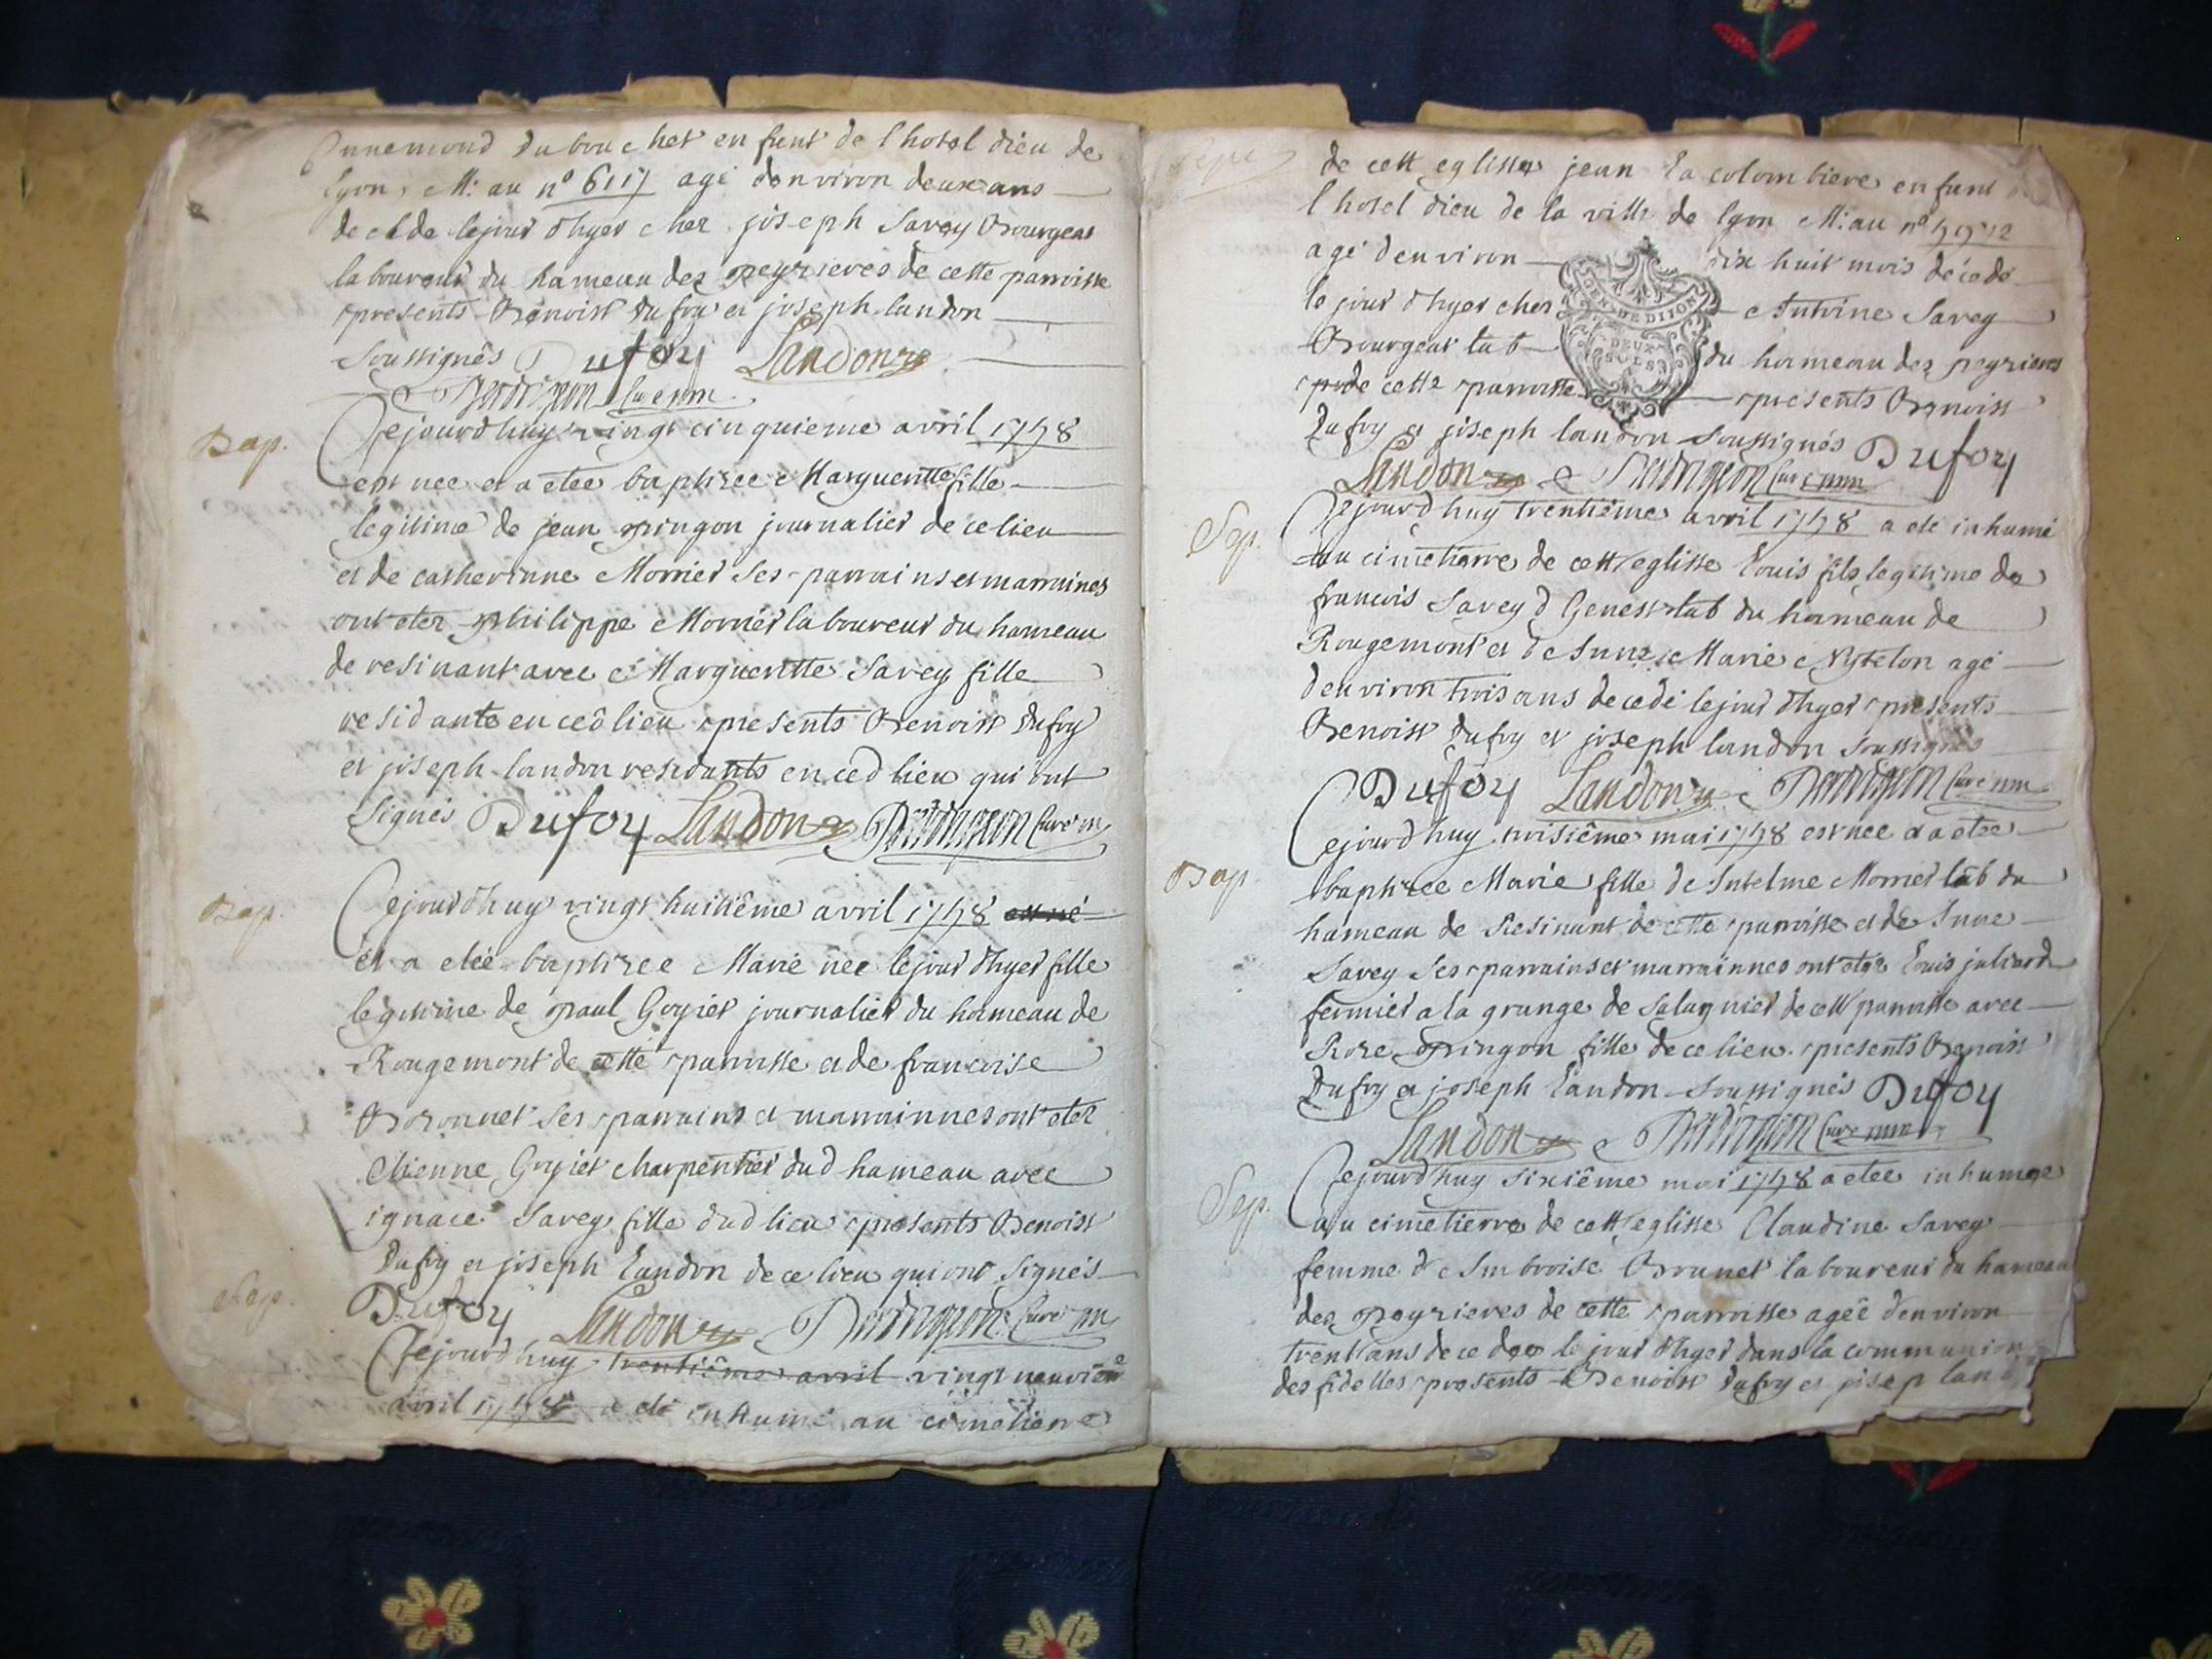 Annemond dubouchet enfant de l hotel dieu de
lyon, M: au n° 6117 agé denviron deux ans
decede lejour dhyer chez joseph Savey Bourgeat
laboureur du hameau des peyrieres de cette parroisse
presents Benoist dufoy et joseph landon
Soussignés Dufoy Landon
Curé
Bap. Cejourdhuy vingt cinquieme avril 1758
est nee et a etee baptizee Margueritte fille
legitime de jean pingon journalier de ce lieu
et de catherinne Morrier Ses parrains et marraines
ont eter philippe Morrier laboureur du hameau
de resinant avec Margueritte Savey fille
residante en ced lieu presents Benoist dufoy
et joseph landon residants en ced lieu qui ont
signés Dufoy Landon Curé
Bap. Cejourdhuy vingt huitiême avril 1758 est né
et a etée baptizee Marie née lejour dhyer fille
legitime de paul Goyiet journalier du hameau de
Rougemont de cette parroisse et de francoise
Boronnet Ses parrains et marrainnes ont eter
Etienne Goyiet charpentier dud hameau avec
ignace Savey fille dud lieu presents Benoist
Dufoy et joseph Landon de ce lieu qui ont signés
Dufoy Landon Curé
Sep. Cejourdhuy trentiême avril vingt neuvieme
avril 1758 a été inhumé au cimetierre
Sepe
de cett eglisse jean La colombiere enfant de
l hotel dieu de la ville de lyon M: au n°
agé denviron dix huit mois décédé
le jour dhyer chez Antoine Savey
GEN. DE DIJON
DEUX
SOLS
Bourgeat lab du hameau des peyrieres
de cette parroisse presents Benoist
Dufoy et joseph landon soussignés Dufoy
Landon Curé
Sep. Cejourdhuy trentiême avril 1758 a eté inhumé
au cimetierre de cett eglisse Louis fils legitime de
francois Savey d Genest lab du hameau de
Rougemont et de Anne Marie agé
denviron trois ans decedé lejour dhyer presents
Benoist dufoy et joseph landon soussignés
Dufoy Landon Curé
Cejourdhuy troisiême mai 1758 est nee et a etee
Bap baptizee Marie fille de Antelme Morriet lab du
hameau de Resinant de cette parroisse et de Anne
Savey Ses parrains et marrainnes ont eter Louis juliard
fermier a la grange de Salagnier de cett parroisse avec
Roze pingon fille de ce lieu presents Benoist
Dufoy et joseph Landon Soussignés Dufoy
Landon Curé
Sep. Cejourdhuy sixiême mai 1758 a etee inhumee
au cimetierre de cett eglisse Claudine Savey
femme d Ambroise Brunet laboureur du hameau
des peyrieres de cette parroisse ageê denviron
trent ans decedee le jour dhyer dans la communion
des fidelles presents Benoist Dufoy et josep land